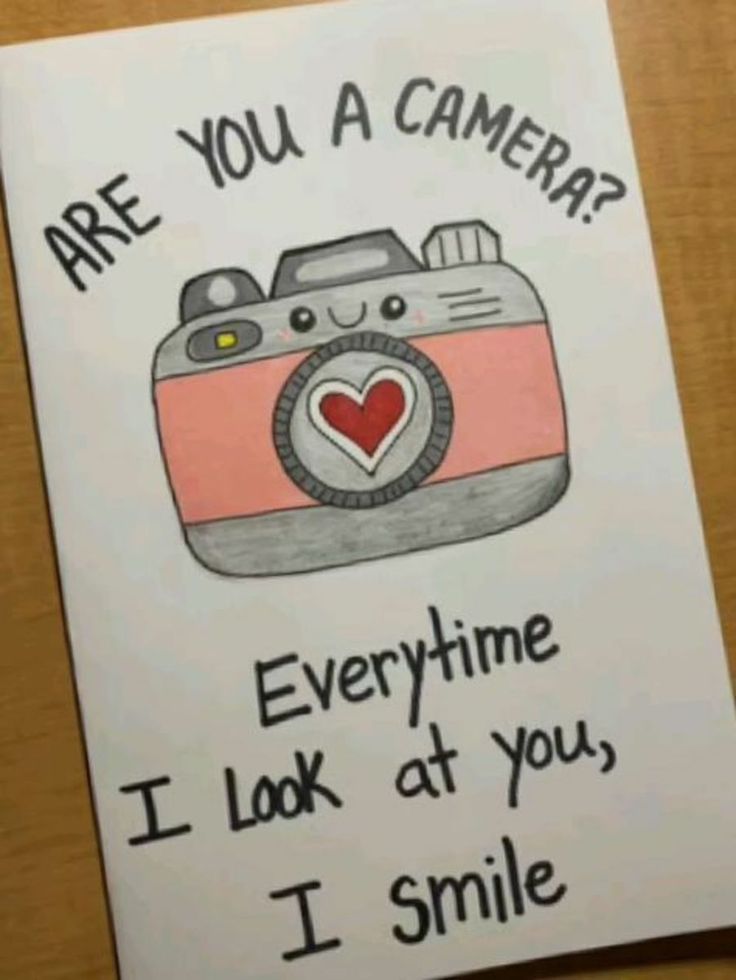 ARE YOU A CAMERA?
Everytime
I Look at you,
I smile